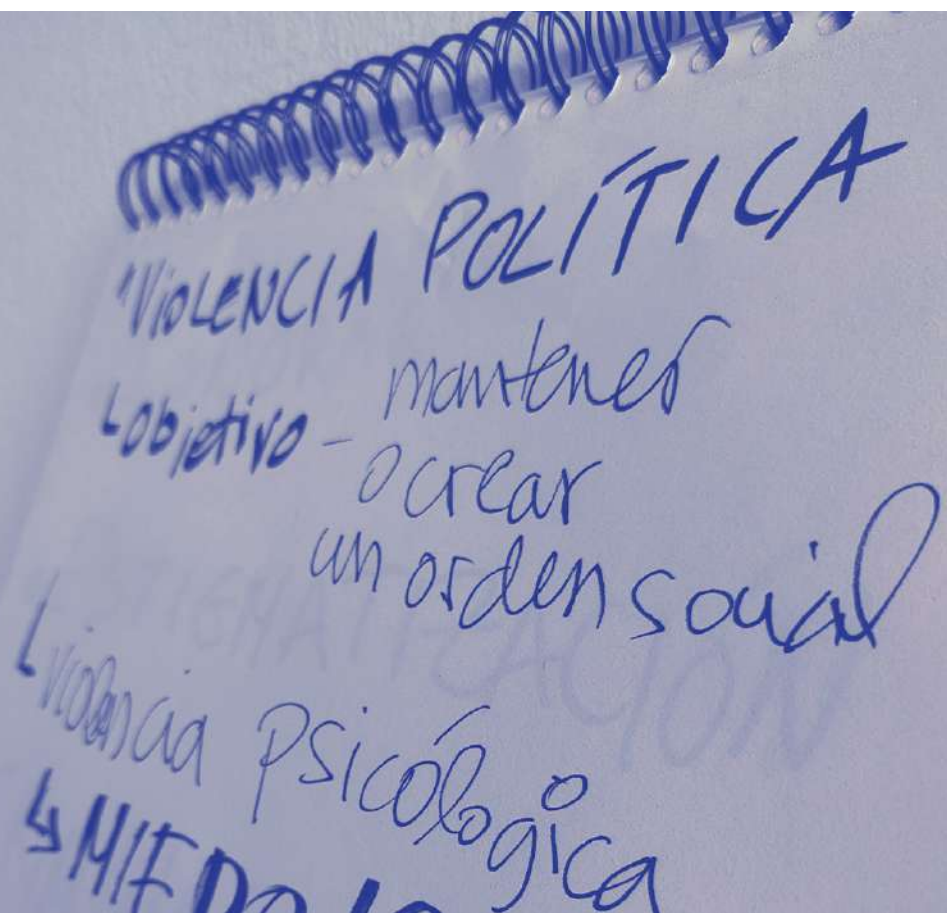 "VIOLENCIA POLÍTICA
↳objetivo - mantener
o crear
un orden social
↳violencia psicológica
↳MIEDO